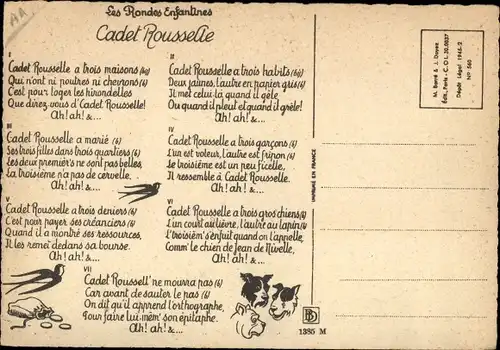 AA
Les Rondes Enfantines
Cadet Rousselle
I
Cadet Rousselle a trois maisons (bis)
Qui n'ont ni poutres ni chevrons (6)
C'est pour loger les hirondelles
Que direz-vous d'Cadet Rousselle!
Ah! ah! &...
II
Cadet Rousselle a trois habits (bis)
Deux jaunes, l'autre en papier gris (6)
Il met celui-là quand il gèle
Ou quand il pleut et quand il grêle!
Ah! ah! &...
III
Cadet Rousselle a marié (6)
Ses trois filles dans trois quartiers (6)
Les deux premièr's ne sont pas belles,
La troisième n'a pas de cervelle.
Ah! ah! &...
IV
Cadet Rousselle a trois garçons (6)
L'un est voleur, l'autre est fripon (6)
Le troisième est un peu ficelle,
Il ressemble à Cadet Rousselle.
Ah! ah! &...
V
Cadet Rousselle a trois deniers (6)
C'est pour payer ses créanciers (6)
Quand il a montré ses ressources,
Il les remet dedans sa bourse.
Ah! ah! &...
VI
Cadet Rousselle a trois gros chiens (6)
L'un court au lièvre, l'autre au lapin (6)
L'troisièm' s'enfuit quand on l'appelle,
Comm' le chien de Jean de Nivelle.
Ah! ah! &...
VII
Cadet Roussell' ne mourra pas (6)
Car avant de sauter le pas (6)
On dit qu'il apprend l'orthographe,
Pour faire lui-mêm' son épitaphe.
Ah! ah! &...
BD
1385 M
IMPRIMÉ EN FRANCE
M. Barré & J. Dayez
Édit., Paris - C.O.L. 30.0037
Dépôt Légal 1946-2
N° 560